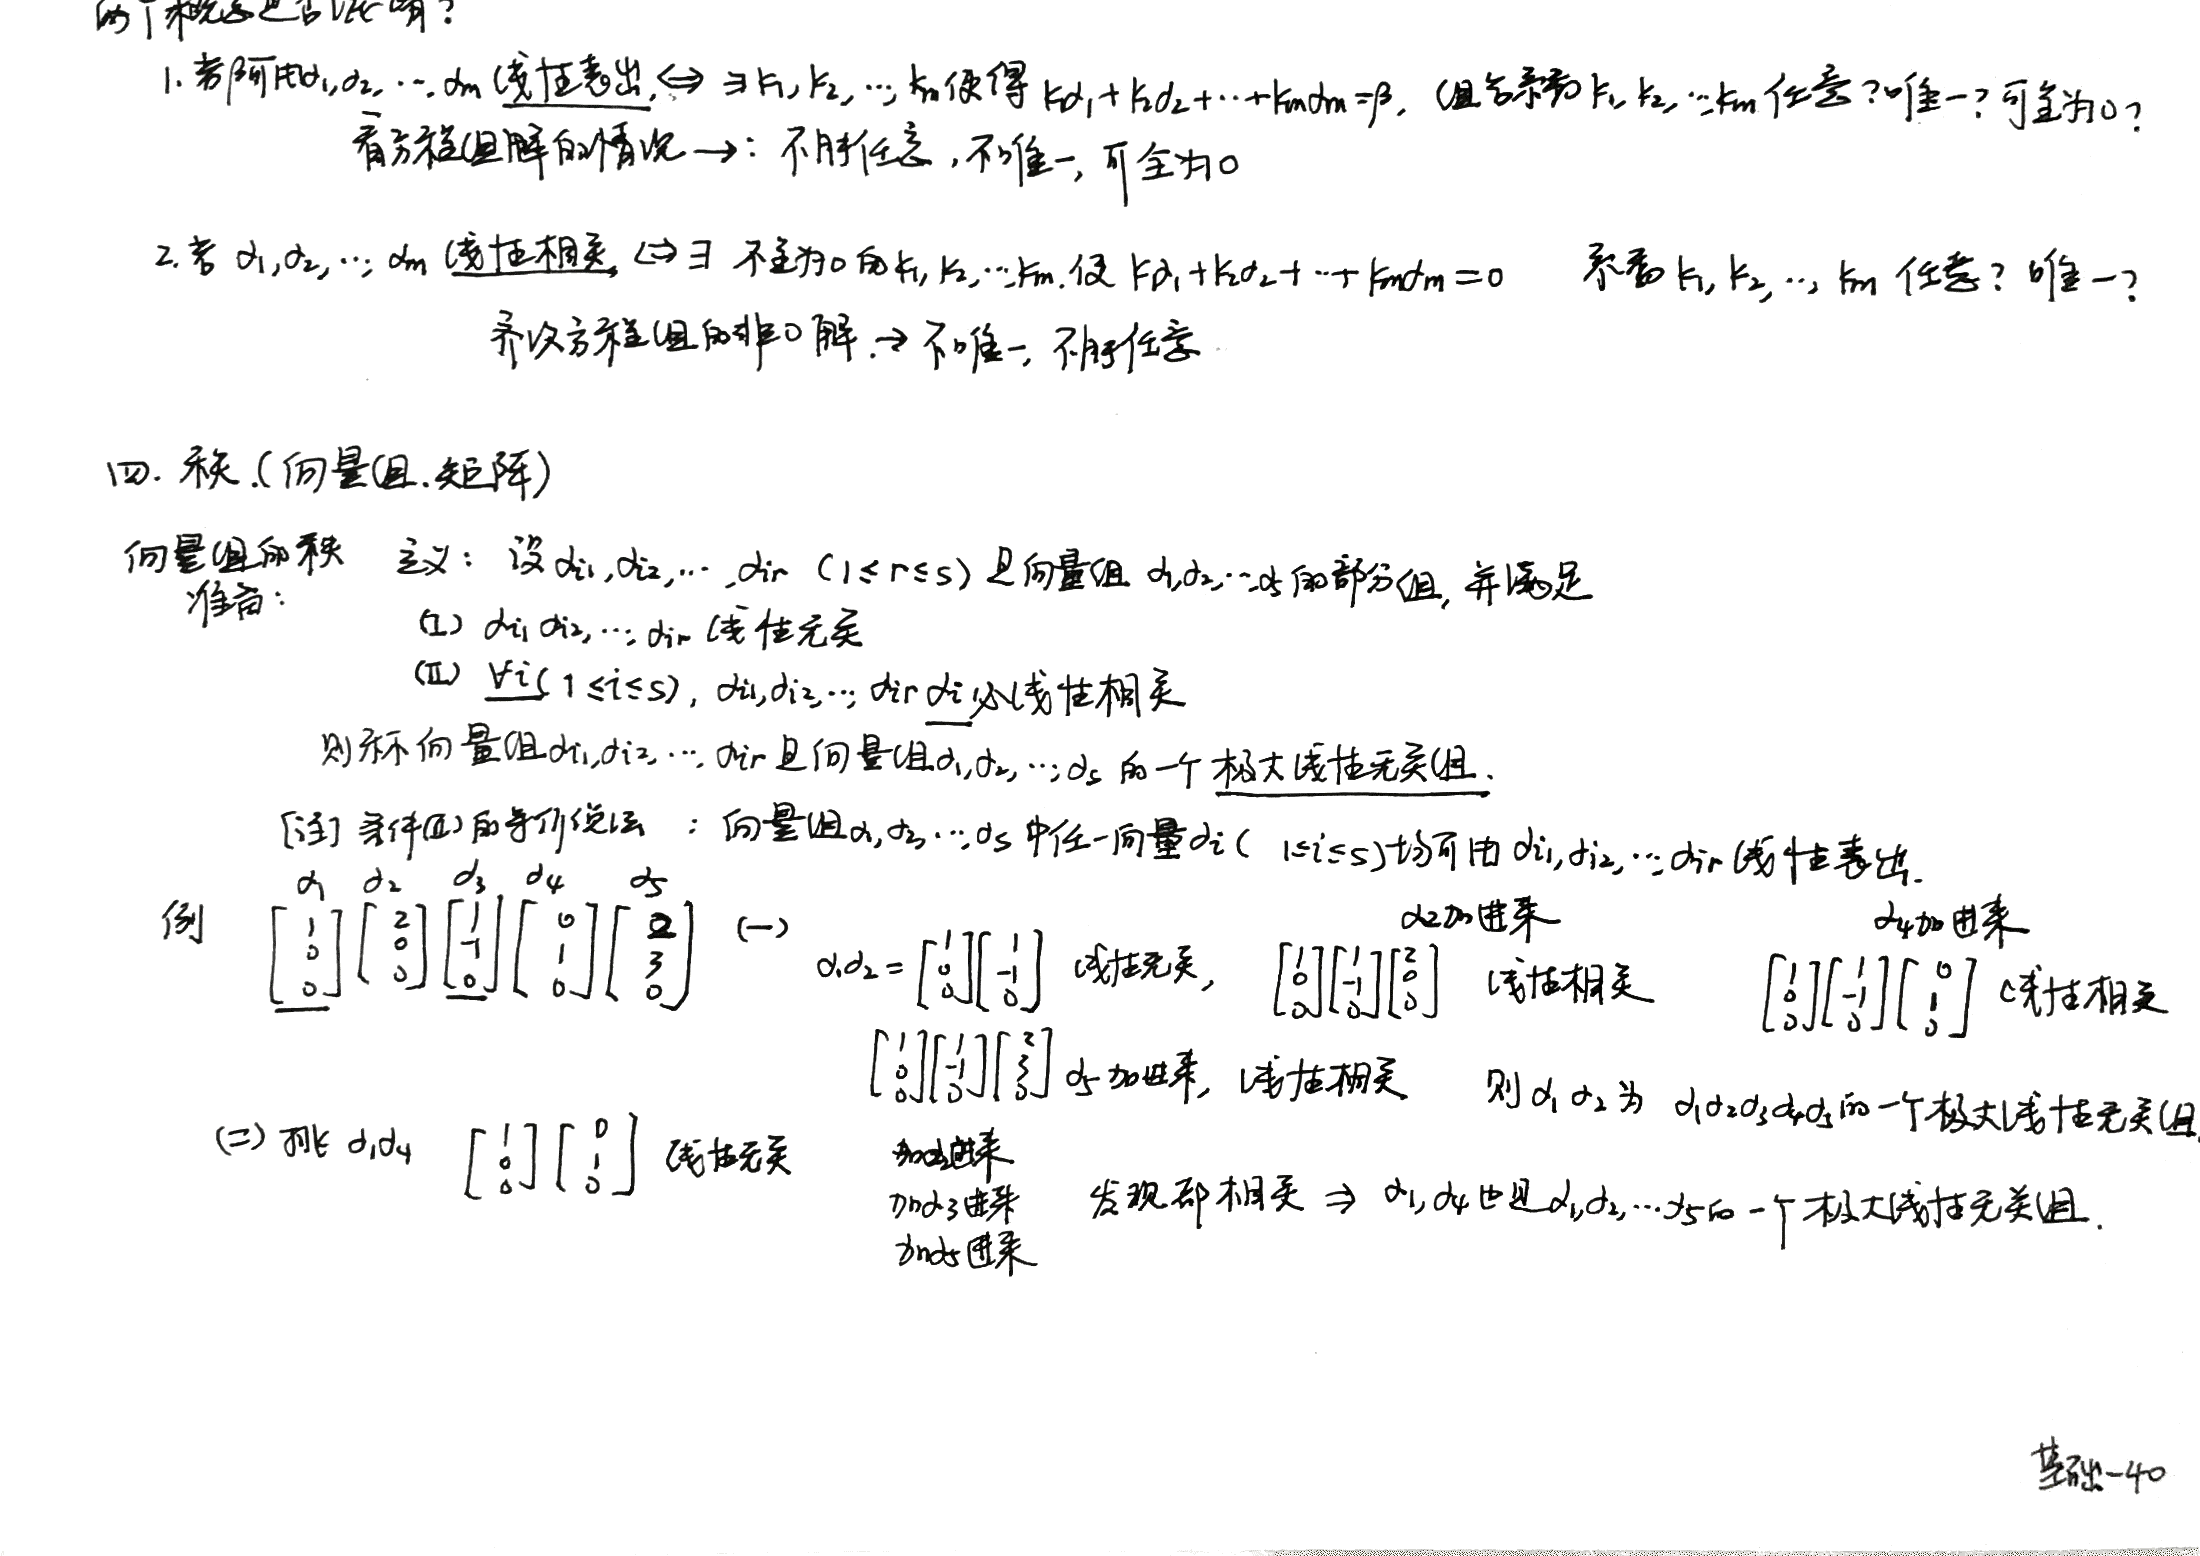 两个概念是否清晰?
1. 若β可由α1,α2,…,αm 线性表出 ⇔ ∃ k1,k2,…,km使得 k1α1+k2α2+…+kmαm=β. 组合系数 k1,k2,…,km 任意?唯一?可全为0?
看方程组解的情况→: 不用任意,不唯一,可全为0
2.若 α1,α2,…,αm 线性相关 ⇔∃ 不全为0的k1,k2,…,km.使 k1α1+k2α2+…+kmαm=0 系数k1,k2,…,km 任意?唯一?
齐次方程组的非0解.→不唯一,不用任意
四.秩.(向量组.矩阵)
向量组的秩 定义: 设αi1,αi2,…,αir (1≤r≤s)是向量组 α1,α2,…,αs的部分组,并满足
准备:
(Ⅰ) αi1 αi2,…,αir线性无关
(Ⅱ) ∀i(1≤i≤s), αi1,αi2,…,αir αi必线性相关
则称向量组αi1,αi2,…,αir是向量组α1,α2,…,αs 的一个极大线性无关组.
[注]条件(Ⅱ)的等价说法 : 向量组α1,α2,…,αs中任一向量αi( 1≤i≤s)均可由αi1,αi2,…,αir线性表出.
α1 α2 α3 α4 α5
例 [1 0 0] [2 0 0] [1 -1 0] [0 1 0] [2 3 0] (一) α1α2= [1 0 0] [1 -1 0] 线性无关, α2加进来 [1 0 0] [1 -1 0] [2 0 0] 线性相关 α4加进来 [1 0 0] [1 -1 0] [0 1 0] 线性相关
[1 0 0] [1 -1 0] [2 3 0] α5加进来,线性相关 则α1 α2为 α1α2α3α4α5的一个极大线性无关组
(二) α1α4 [1 0 0] [0 1 0] 线性无关 加α2进来
加α3进来 发现都相关 ⇒ α1,α4也是α1,α2,…α5的一个极大线性无关组.
加α5进来
基础-40